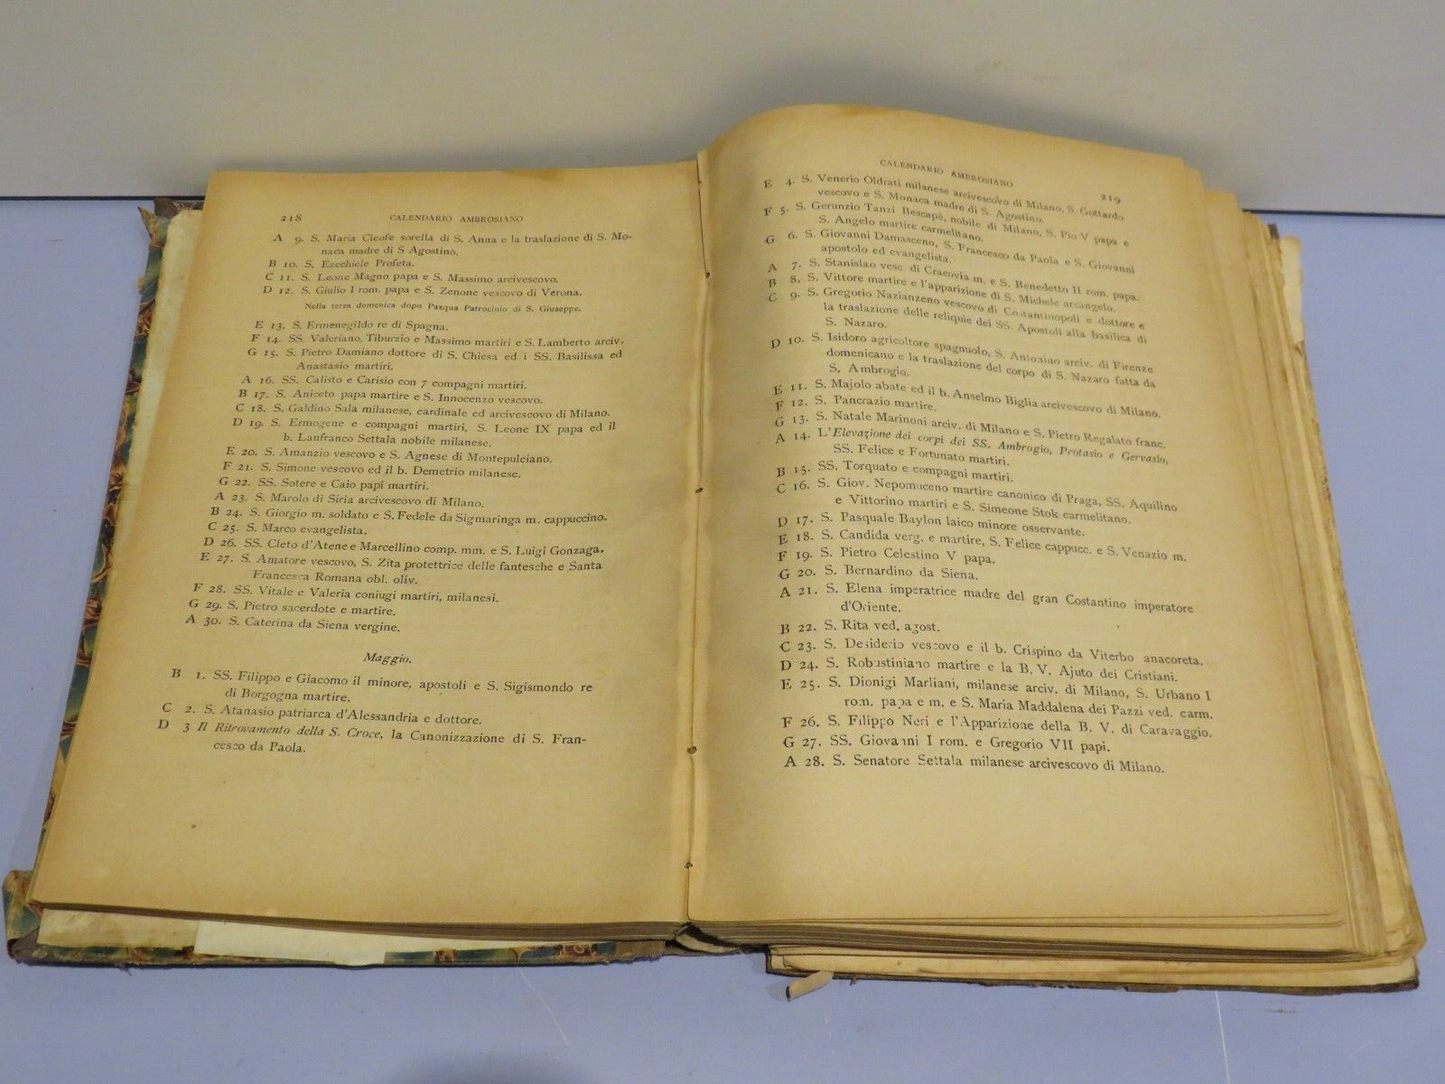 218 CALENDARIO AMBROSIANO
A 9. S. Maria Cleofe sorella di S. Anna e la traslazione di S. Mo-
naca madre di S Agostino.
B 10. S. Ezechiele Profeta.
C 11. S. Leone Magno papa e S. Massimo arcivescovo.
D 12. S. Giulio I rom. papa e S. Zenone vescovo di Verona.
Nella terza domenica dopo Pasqua Patrocinio di S. Giuseppe.
E 13. S. Ermenegildo re di Spagna.
F 14. SS. Valeriano, Tiburzio e Massimo martiri e S. Lamberto arciv.
G 15. S. Pietro Damiano dottore di S. Chiesa ed i SS. Basilissa ed
Anastasio martiri.
A 16. SS. Calisto e Carisio con 7 compagni martiri.
B 17. S. Aniceto papa martire e S. Innocenzo vescovo.
C 18. S. Galdino Sala milanese, cardinale ed arcivescovo di Milano.
D 19. S. Ermogene e compagni martiri, S. Leone IX papa ed il
b. Lanfranco Settala nobile milanese.
E 20. S. Amanzio vescovo e S. Agnese di Montepulciano.
F 21. S. Simone vescovo ed il b. Demetrio milanese.
G 22. SS. Sotere e Caio papi martiri.
A 23. S. Marolo di Siria arcivescovo di Milano.
B 24. S. Giorgio m. soldato e S. Fedele da Sigmaringa m. cappuccino.
C 25. S. Marco evangelista.
D 26. SS. Cleto d'Atene e Marcellino comp. mm. e S. Luigi Gonzaga.
E 27. S. Amatore vescovo, S. Zita protettrice delle fantesche e Santa
Francesca Romana obl. oliv.
F 28. SS. Vitale e Valeria coniugi martiri, milanesi.
G 29. S. Pietro sacerdote e martire.
A 30. S. Caterina da Siena vergine.
Maggio.
B 1. SS. Filippo e Giacomo il minore, apostoli e S. Sigismondo re
di Borgogna martire.
C 2. S. Atanasio patriarca d'Alessandria e dottore.
D 3 Il Ritrovamento della S. Croce, la Canonizzazione di S. Fran-
cesco da Paola.
CALENDARIO AMBROSIANO 219
E 4. S. Venerio Oldrati milanese arcivescovo di Milano, S. Gottardo
vescovo e S. Monaca madre di S. Agostino.
F 5. S. Gerunzio Tanzi Bescapè, nobile di Milano, S. Pio V papa e
S. Angelo martire carmelitano.
G 6. S. Giovanni Damasceno, S. Francesco da Paola e S. Giovanni
apostolo ed evangelista.
A 7. S. Stanislao vesc. di Cracovia m. e S. Benedetto II rom. papa.
B 8. S. Vittore martire e l'apparizione di S. Michele arcangelo.
C 9. S. Gregorio Nazianzeno vescovo di Costantinopoli e dottore e
la traslazione delle reliquie dei SS. Apostoli alla basilica di
S. Nazaro.
D 10. S. Isidoro agricoltore spagnuolo, S. Antonino arciv. di Firenze
domenicano e la traslazione del corpo di S. Nazaro fatta da
S. Ambrogio.
E 11. S. Majolo abate ed il b. Anselmo Biglia arcivescovo di Milano.
F 12. S. Pancrazio martire.
G 13. S. Natale Marinoni arciv. di Milano e S. Pietro Regalato franc.
A 14. L'Elevazione dei corpi dei SS. Ambrogio, Protasio e Gervasio,
SS. Felice e Fortunato martiri.
B 15. SS. Torquato e compagni martiri.
C 16. S. Giov. Nepomuceno martire canonico di Praga, SS. Aquilino
e Vittorino martiri e S. Simeone Stok carmelitano.
D 17. S. Pasquale Baylon laico minore osservante.
E 18. S. Candida verg. e martire, S. Felice cappucc. e S. Venazio m.
F 19. S. Pietro Celestino V papa.
G 20. S. Bernardino da Siena.
A 21. S. Elena imperatrice madre del gran Costantino imperatore
d'Oriente.
B 22. S. Rita ved. agost.
C 23. S. Desiderio vescovo e il b. Crispino da Viterbo anacoreta.
D 24. S. Robustiniano martire e la B. V. Ajuto dei Cristiani.
E 25. S. Dionigi Marliani, milanese arciv. di Milano, S. Urbano I
rom. papa e m. e S. Maria Maddalena dei Pazzi ved. carm.
F 26. S. Filippo Neri e l'Apparizione della B. V. di Caravaggio.
G 27. SS. Giovanni I rom. e Gregorio VII papi.
A 28. S. Senatore Settala milanese arcivescovo di Milano.